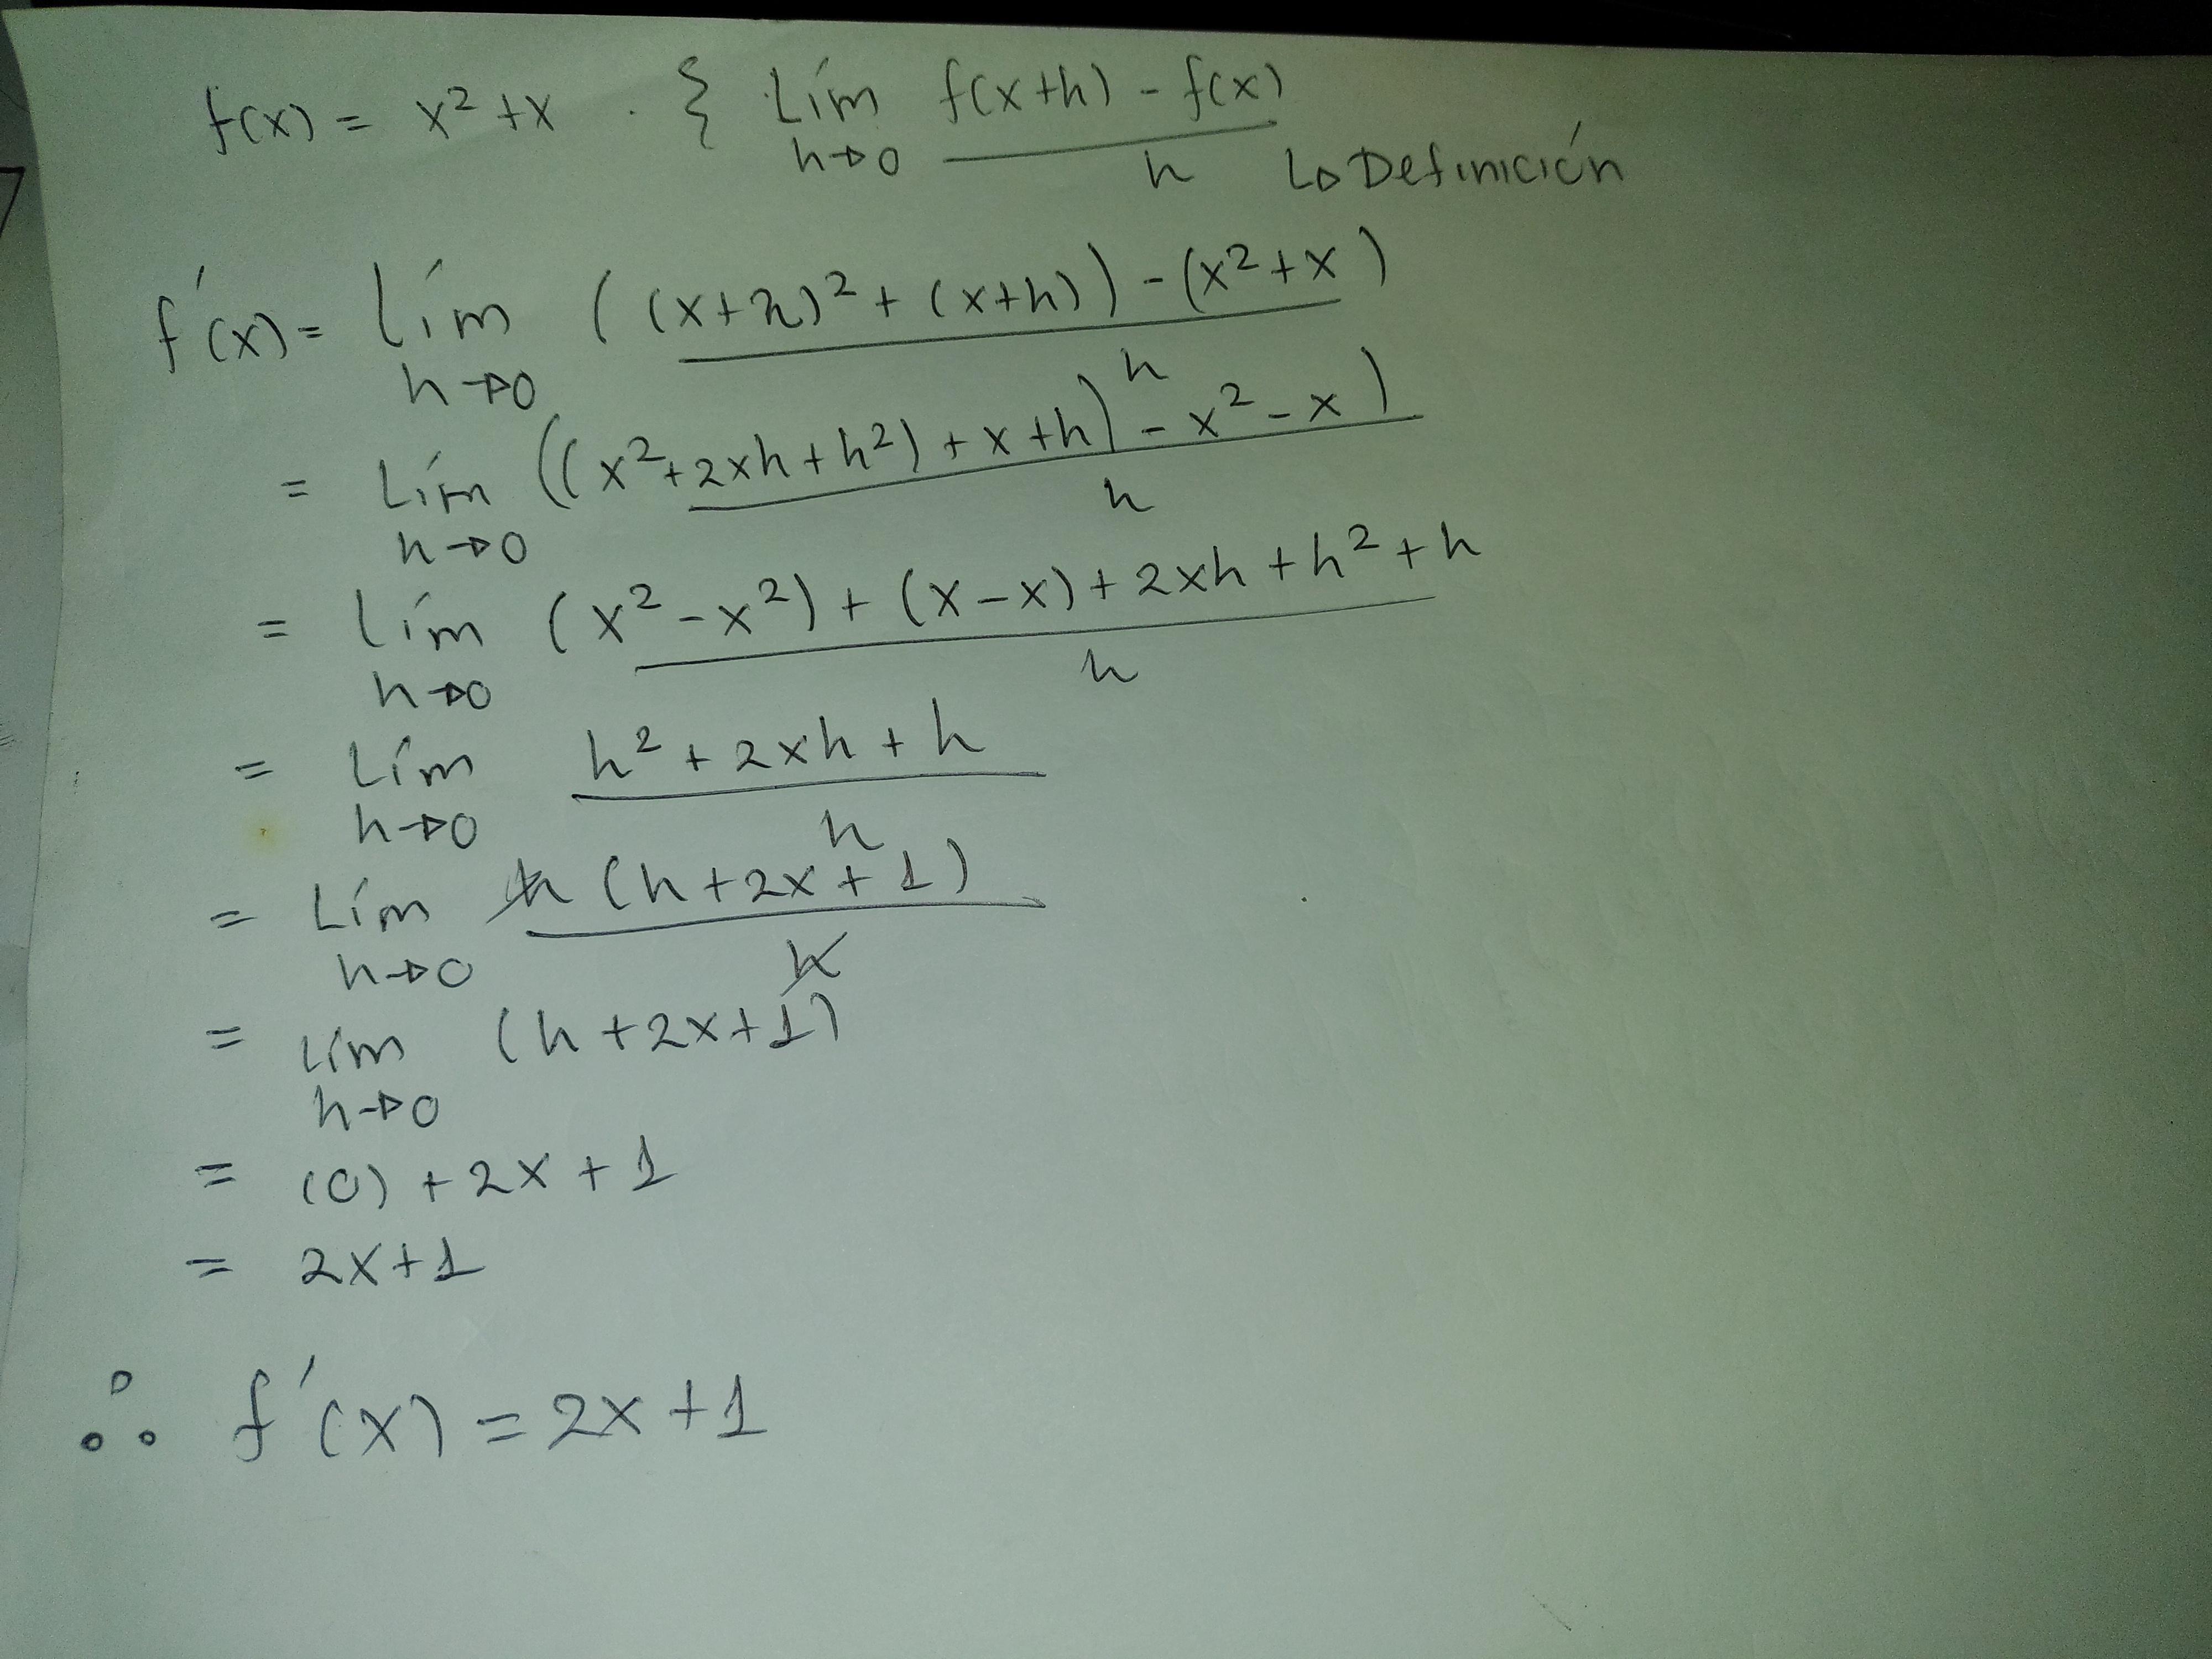 f(x) = x² + x . { Lím h→0 f(x+h) - f(x) / h ↳ Definición
f'(x) = Lím h→0 ((x+h)² + (x+h)) - (x² + x) / h
= Lím h→0 ((x² + 2xh + h²) + x + h) - x² - x) / h
= Lím h→0 (x² - x²) + (x - x) + 2xh + h² + h / h
= Lím h→0 h² + 2xh + h / h
= Lím h→0 h (h + 2x + 1) / h
= Lím h→0 (h + 2x + 1)
= (0) + 2x + 1
= 2x + 1
∴ f'(x) = 2x + 1